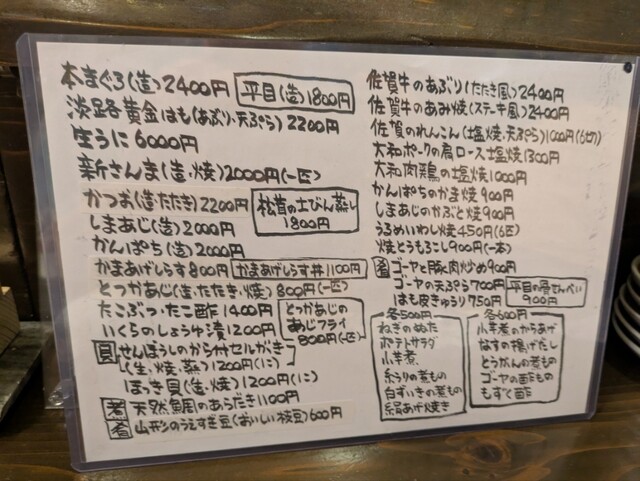 本まぐろ(造)2400円
平目(造)1800円
淡路黄金はも(あぶり・天ぷら)2200円
生うに6000円
新さんま(造・焼)2000円(一匹)
かつお(造・たたき)2200円
しまあじ(造)2000円
松茸の土びん蒸し
1800円
かんぱち(造)2000円
かまあげしらす800円
かまあげしらす丼1100円
とつかあじ(造・たたき・焼)800円(一匹)
たこぶつ・たこ酢1400円
いくらのしょうゆ漬1200円
とつかあじの
あじフライ
800円(一匹)
貝
せんぽうしのから付セルがき
(生・焼・蒸)1200円(1コ)
ほっき貝(造・焼)1200円(1コ)
煮 天然魚のあらだき1100円
肴 山形のうえすぎ豆(おいしい枝豆)600円
佐賀牛のあぶり(たたき風)2400円
佐賀牛のあみ焼(ステーキ風)2400円
佐賀のれんこん(塩焼・天ぷら)1000円(6切)
大和ポークの肩ロース塩焼1300円
大和肉鶏の塩焼1000円
かんぱちのかま焼900円
しまあじのかぶと焼900円
うるめいわし焼450円(6匹)
焼とうもろこし900円(一本)
肴 ゴーヤと豚肉炒め900円
ゴーヤの天ぷら700円
はも皮きゅうり750円
平目の骨せんべい
900円
各500円
ねぎのぬた
ポテトサラダ
小芋煮
糸うりの煮もの
白ずいきの煮もの
絹あげ焼き
各600円
小芋煮のからあげ
なすの揚げだし
とうがんの煮もの
ゴーヤの酢もの
もずく酢